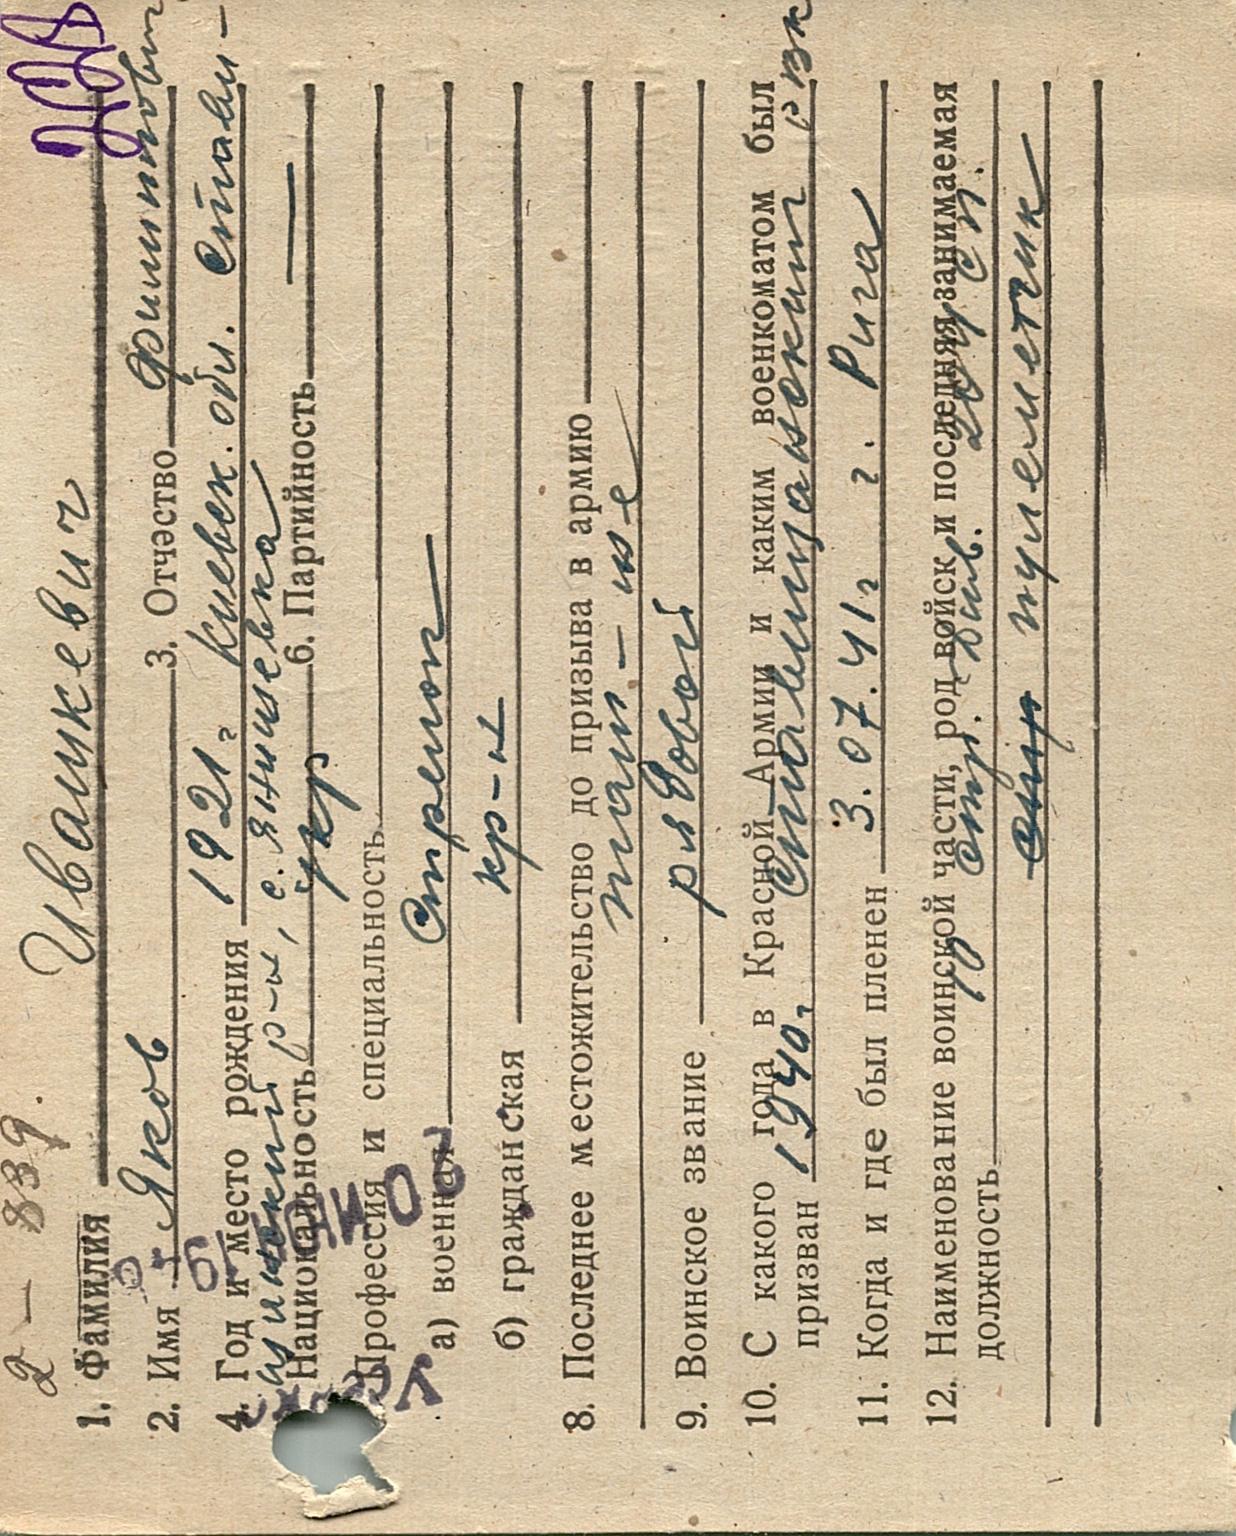 2 – 839.
1. Фамилия Ивашкевич
2. Имя Яков 3. Отчэство Филиппович
4. Год и место рождения 1921 г. Киевск. обл. Стави-
щиский р-н, с. Янишевка
Национальность укр 6. Партийность —
Профессия и специальность
а) военная Стрелок
б) гражданская кр-н
8. Последнее местожительство до призыва в армию
там-же
9. Воинское звание рядовой
10. С какого года в Красной Армии и каким военкоматом был
призван 1940г. Ставищанским РВК
11. Когда и где был пленен 3.07.41г. г. Рига
12. Наименование воинской части, род войск и последняя занимаемая
должность стр. див. сп.
пулеметчик